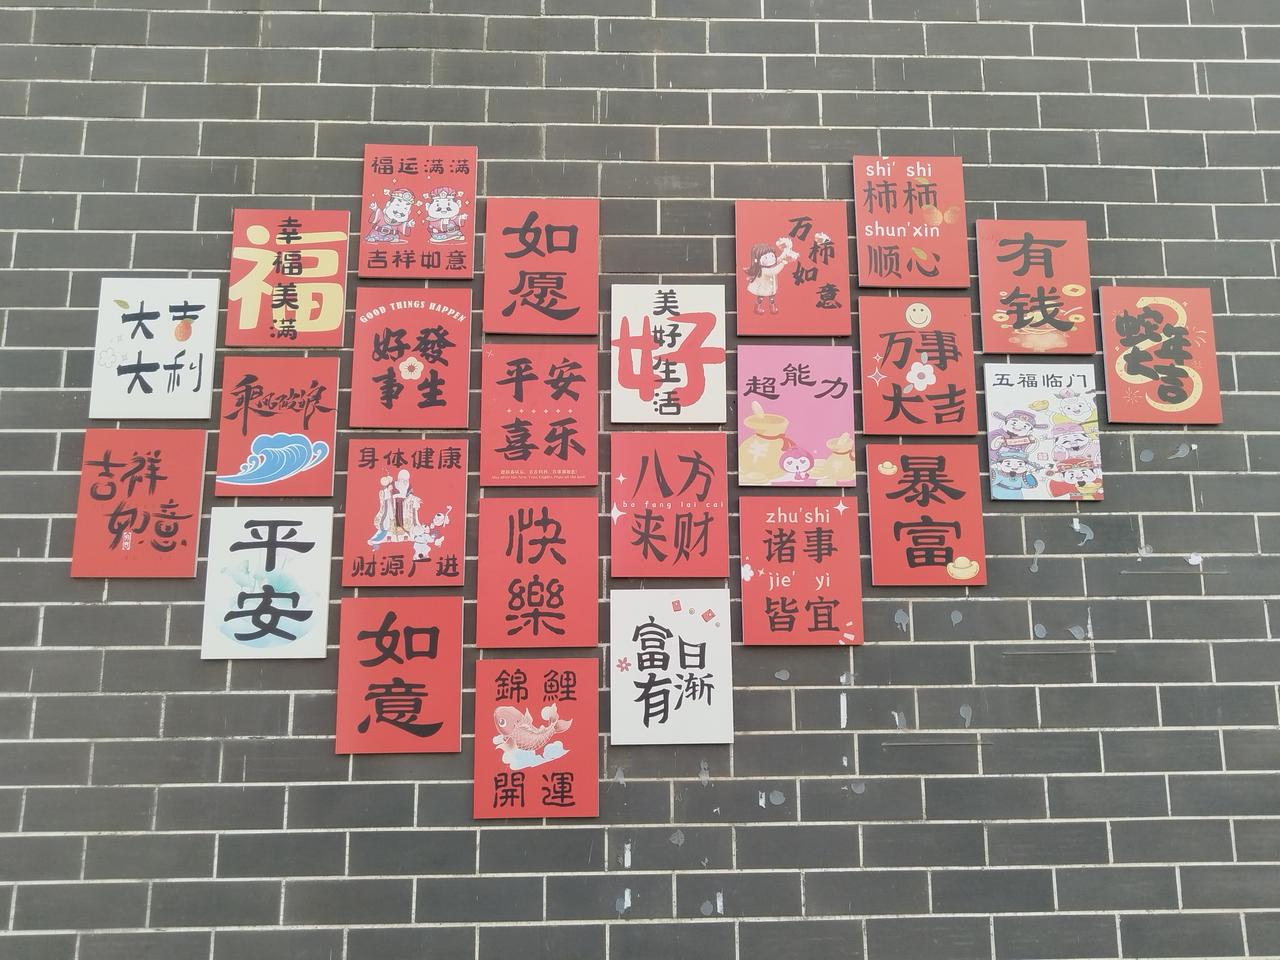 大吉
大利
吉祥
如意
幸福美满
福
乘风破浪
平安
福运满满
吉祥如意
GOOD THINGS HAPPEN
好發
事生
身体健康
财源广进
如意
如愿
平安
喜乐
快樂
錦鲤
開運
美好生活
好
八方
ba fang lai cai
来财
富日
有渐
万柿
如意
超能力
zhu'shi
诸事
jie' yi
皆宜
shi' shi
柿柿
shun'xin
顺心
万事
大吉
暴富
有钱
五福临门
蛇年
大吉